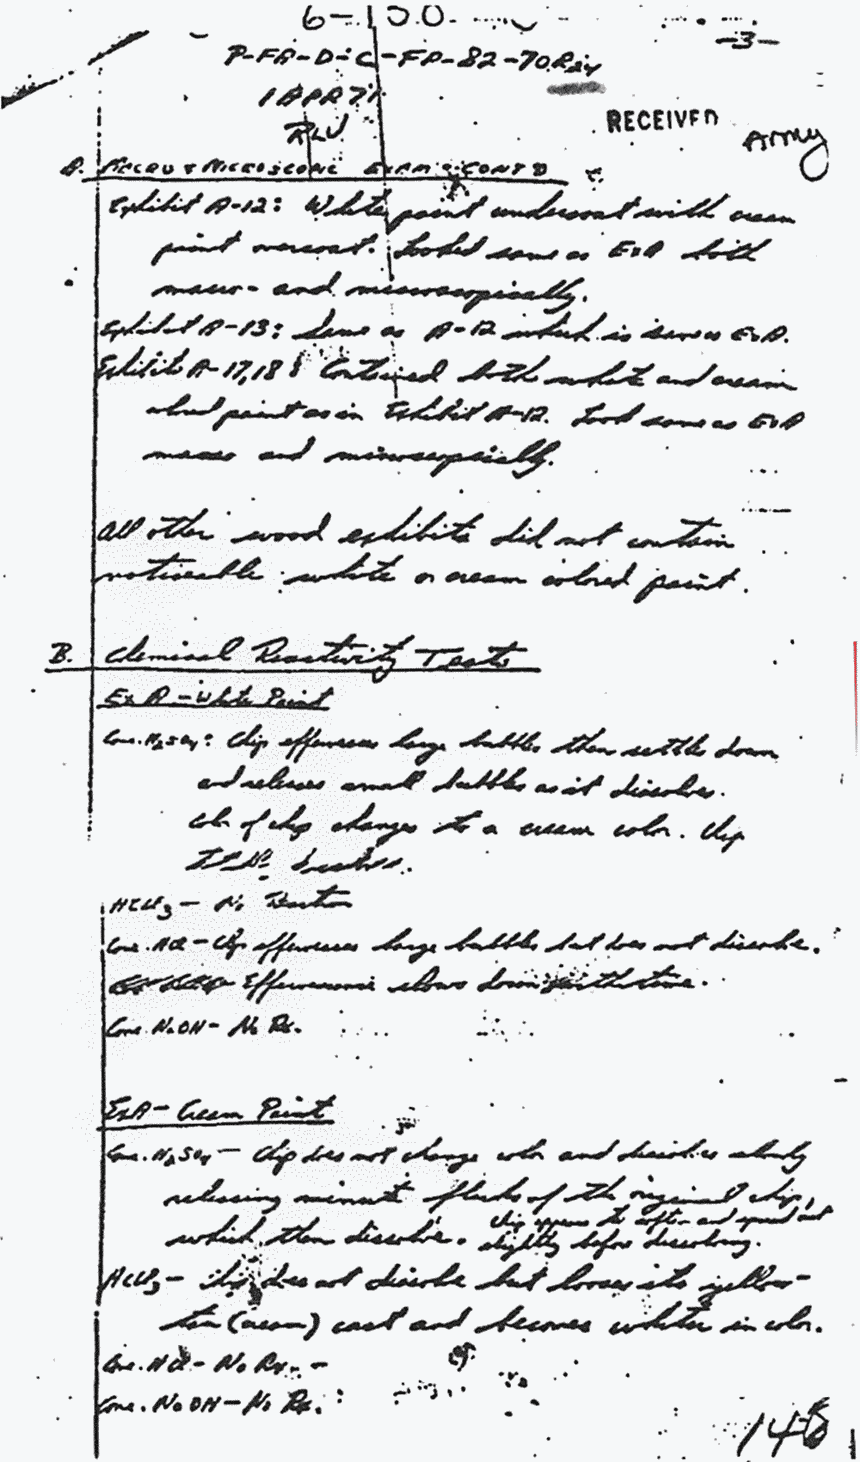 6-150
-3-
P-FA-D-C-FP-82-70-R24
1 APR 71
RLV
RECEIVED
Army
A. MACRO & MICROSCOPIC EXAM: CONT'D
Exhibit A-12: White paint undercoat with cream
paint overcoat. Looked same as ExA both
macro- and microscopically.
Exhibit A-13: Same as A-12 which is same as ExA.
Exhibits A-17,18: Contained both white and cream
colored paint as in Exhibit A-12. Look same as ExA
macro and microscopically.
All other wood exhibits did not contain
noticeable white or cream colored paint.
B. Chemical Reactivity Tests
Ex A - White Paint
Conc. H2SO4: Chip effervesces large bubbles then settles down
and releases small bubbles as it dissolves.
Color of chip changes to a cream color. Chip
HCCl3 - No Reaction
Conc. HCl - Chip effervesces large bubbles but does not dissolve.
Effervescence slows down with time.
Conc. NaOH - No Rx.
ExA - Cream Paint
Conc. H2SO4 - Chip does not change color and dissolves slowly
releasing minute flecks of the original chip,
which then dissolve. Chip appears to soften and spread out
slightly before dissolving.
HCCl3 - Chip does not dissolve but looses its yellow-
tan (cream) cast and becomes whiter in color.
Conc. HCl - No Rx. -
Conc. NaOH - No Rx.
148